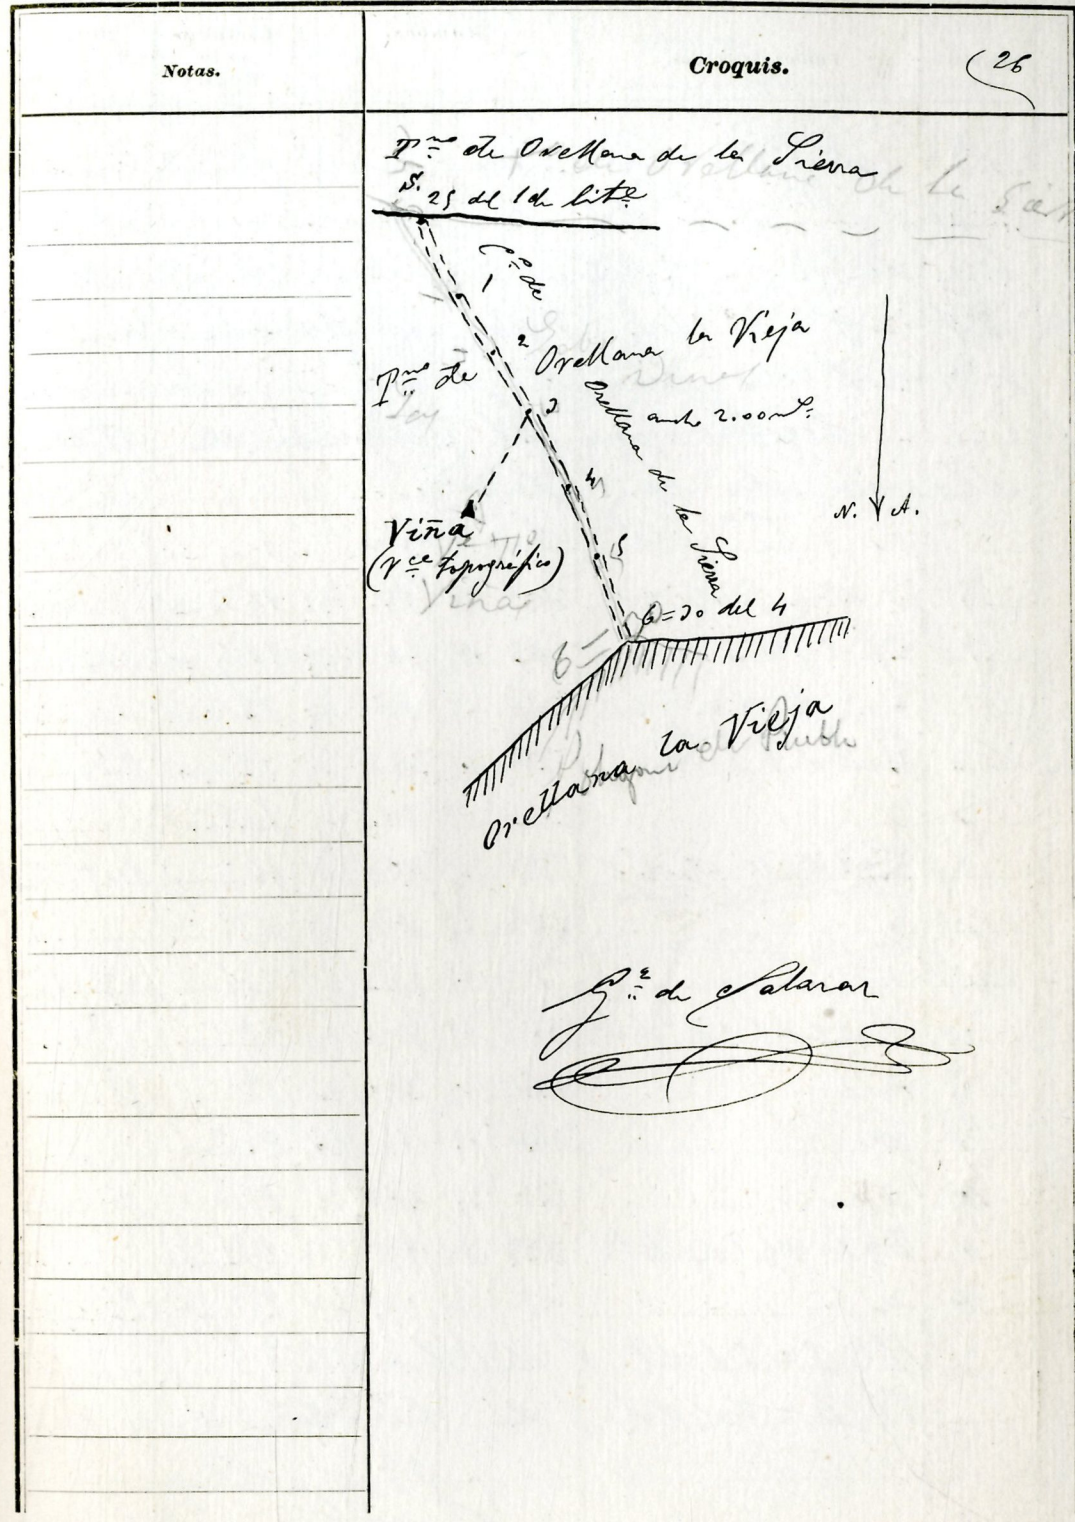 Notas.
Croquis.
26
T.no de Orellana de la Sierra
S. 25 del 1 de lite
C.no de
1
2
Orellana la Vieja
T.no de
3
Orellana de la Sierra
ancho 2.00 m.s
4
N. A.
Viña
(V.ce topográfico)
5
6=30 del 4
6=
Orellana la Vieja
G.z de Salazar